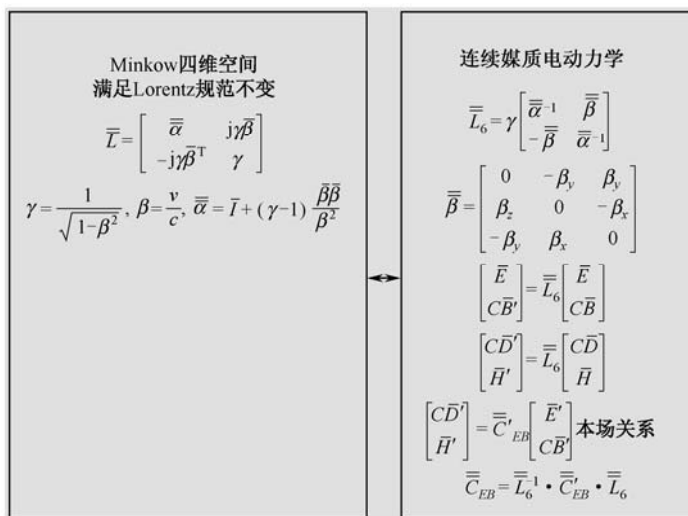 Minkow四维空间
满足Lorentz规范不变
$\overline{\overline{L}}=\begin{bmatrix} \overline{\overline{\alpha}} & \mathrm{j}\gamma\bar{\beta} \\ -\mathrm{j}\gamma\bar{\beta}^{\mathrm{T}} & \gamma \end{bmatrix}$
$\gamma=\frac{1}{\sqrt{1-\beta^2}}, \beta=\frac{v}{c}, \overline{\overline{\alpha}}=\overline{I}+(\gamma-1)\frac{\bar{\beta}\bar{\beta}}{\beta^2}$
连续媒质电动力学
$\overline{\overline{L}}_6=\gamma\begin{bmatrix} \overline{\overline{\alpha}}^{-1} & \overline{\overline{\beta}} \\ -\overline{\overline{\beta}} & \overline{\overline{\alpha}}^{-1} \end{bmatrix}$
$\overline{\overline{\beta}}=\begin{bmatrix} 0 & -\beta_y & \beta_y \\ \beta_z & 0 & -\beta_x \\ -\beta_y & \beta_x & 0 \end{bmatrix}$
$\begin{bmatrix} \overline{E} \\ C\overline{B}' \end{bmatrix}=\overline{\overline{L}}_6\begin{bmatrix} \overline{E} \\ C\overline{B} \end{bmatrix}$
$\begin{bmatrix} C\overline{D}' \\ \overline{H}' \end{bmatrix}=\overline{\overline{L}}_6\begin{bmatrix} C\overline{D} \\ \overline{H} \end{bmatrix}$
$\begin{bmatrix} C\overline{D}' \\ \overline{H}' \end{bmatrix}=\overline{\overline{C}}'_{EB}\begin{bmatrix} \overline{E}' \\ C\overline{B}' \end{bmatrix}$本场关系
$\overline{\overline{C}}_{EB}=\overline{\overline{L}}_6^{-1}\cdot\overline{\overline{C}}'_{EB}\cdot\overline{\overline{L}}_6$